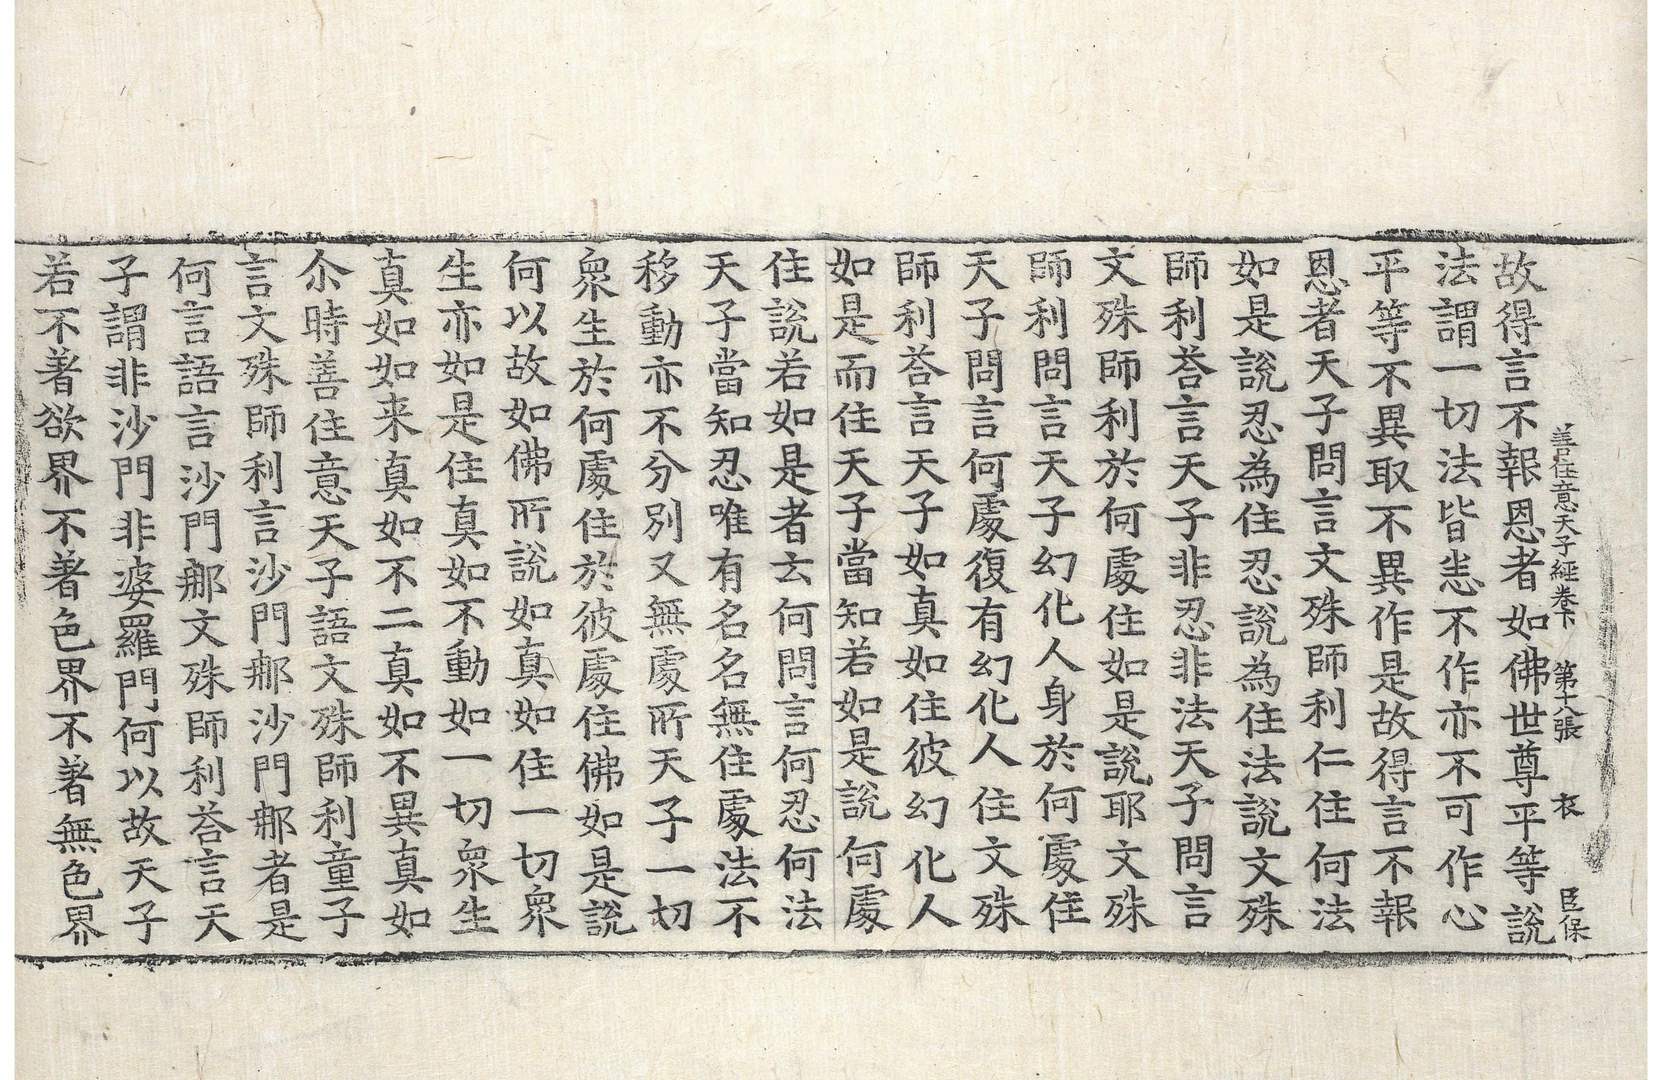 善住意天子經卷下 第六張 衣 臣保
故得言不報恩者如佛世尊平等說
法謂一切法皆悉不作亦不可作心
平等不異取不異作是故得言不報
恩者天子問言文殊師利仁住何法
如是說忍為住忍說為住法說文殊
師利荅言天子非忍非法天子問言
文殊師利於何處住如是說耶文殊
師利問言天子幻化人身於何處住
天子問言何處復有幻化人住文殊
師利荅言天子如真如住彼幻化人
如是而住天子當知若如是說何處
住說若如是者云何問言何忍何法
天子當知忍唯有名名無住處法不
移動亦不分別又無處所天子一切
衆生於何處住於彼處住佛如是說
何以故如佛所說如真如住一切衆
生亦如是住真如不動如一切衆生
真如如来真如不二真如不異真如
尒時善住意天子語文殊師利童子
言文殊師利言沙門𨚗沙門𨚗者是
何言語言沙門𨚗文殊師利荅言天
子謂非沙門非婆羅門何以故天子
若不著欲界不著色界不著無色界